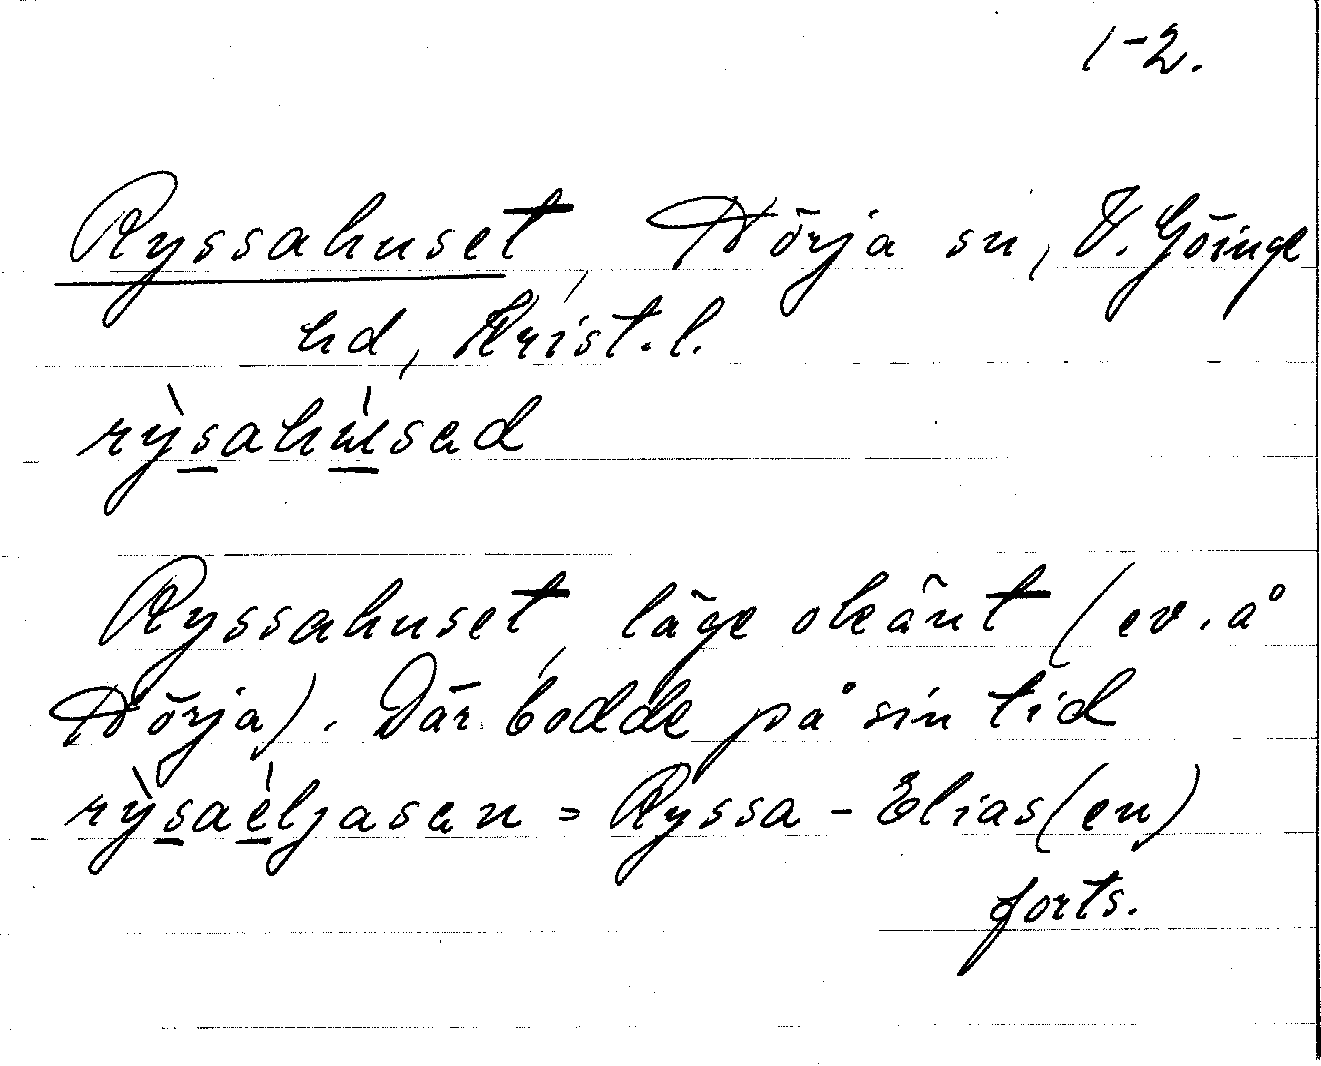 1-2.
Ryssahuset, Nörja sn, V. Göinge
hd, Krist.l.
rỳsahùsad
Ryssahuset, läge okänt (ev. å
Nörja). Där bodde på sin tid
rỳsaèljasan = Ryssa-Elias(en)
forts.